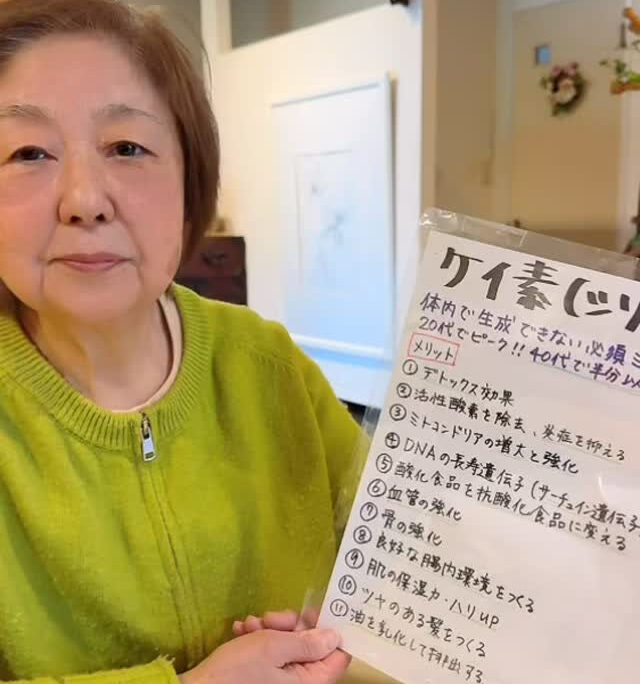 ケイ素(シリ
体内で生成できない必須ミ
20代でピーク!! 40代で半分以
メリット
① デトックス効果
② 活性酸素を除去、炎症を抑える
③ ミトコンドリアの増大と強化
④ DNAの長寿遺伝子(サーチュイン遺伝子
⑤ 酸化食品を抗酸化食品に変える
⑥ 血管の強化
⑦ 骨の強化
⑧ 良好な腸内環境をつくる
⑨ 肌の保湿力・ハリUP
⑩ ツヤのある髪をつくる
⑪ 油を乳化して排出する